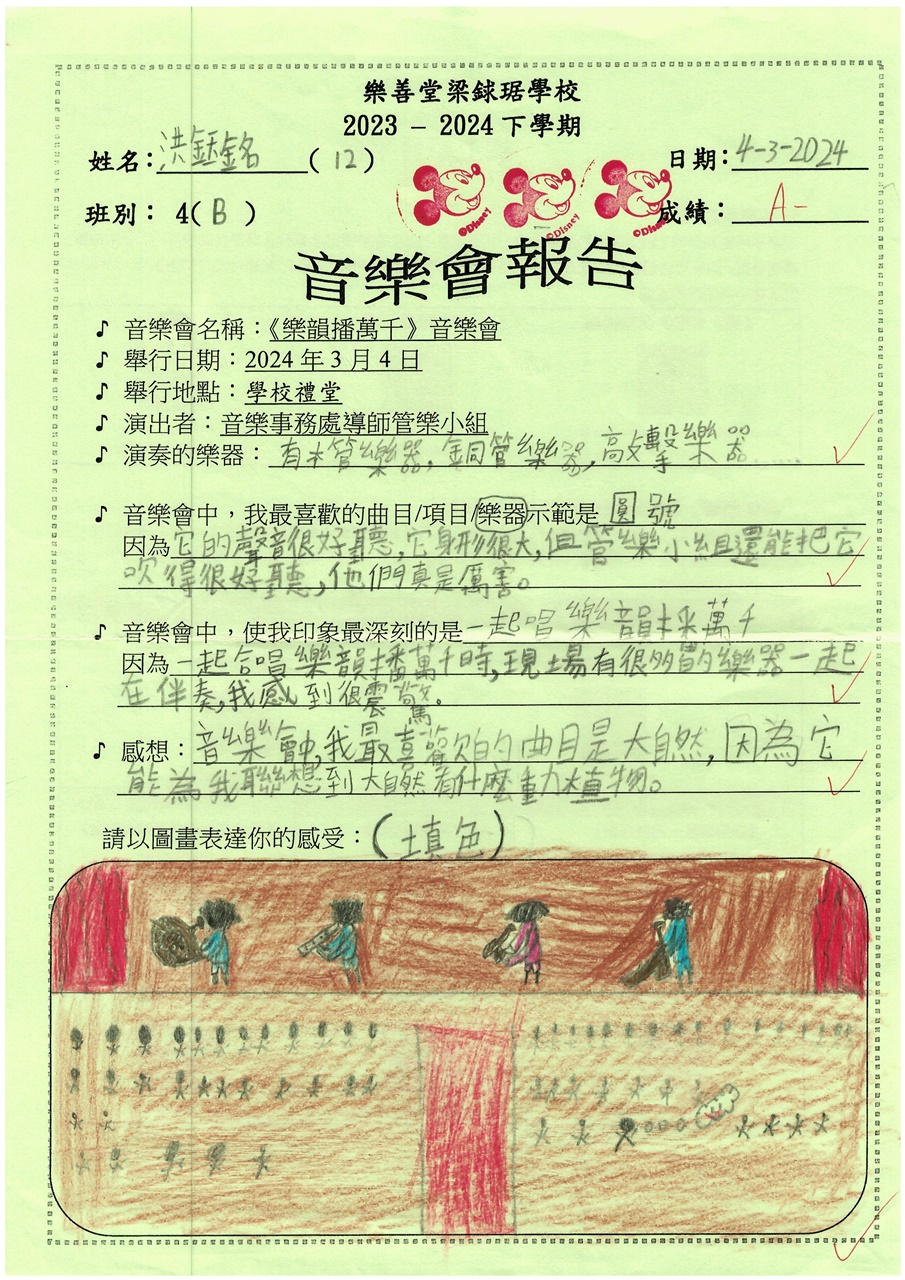 樂善堂梁銶琚學校
2023 - 2024 下學期
姓名：洪鈺銘 ( 12 ) 日期：4-3-2024
©Disney ©Disney ©Disney
班別： 4( B ) 成績： A-
音樂會報告
♪ 音樂會名稱：《樂韻播萬千》音樂會
♪ 舉行日期：2024 年 3 月 4 日
♪ 舉行地點：學校禮堂
♪ 演出者：音樂事務處導師管樂小組
♪ 演奏的樂器：有木管樂器,銅管樂器,敲擊樂器……
♪ 音樂會中，我最喜歡的曲目/項目/樂器示範是 圓號
因為它的聲音很好聽,它身形很大,但管樂小組還能把它
吹得很好聽,他們真是厲害。
♪ 音樂會中，使我印象最深刻的是一起唱樂韻播萬千
因為一起合唱樂韻播萬千時,現場有很多的樂器一起
在伴奏,我感到很震驚.
♪ 感想：音樂會中,我最喜歡的曲目是大自然,因為它
能為我聯想到大自然有什麼動植物。
請以圖畫表達你的感受：(填色)